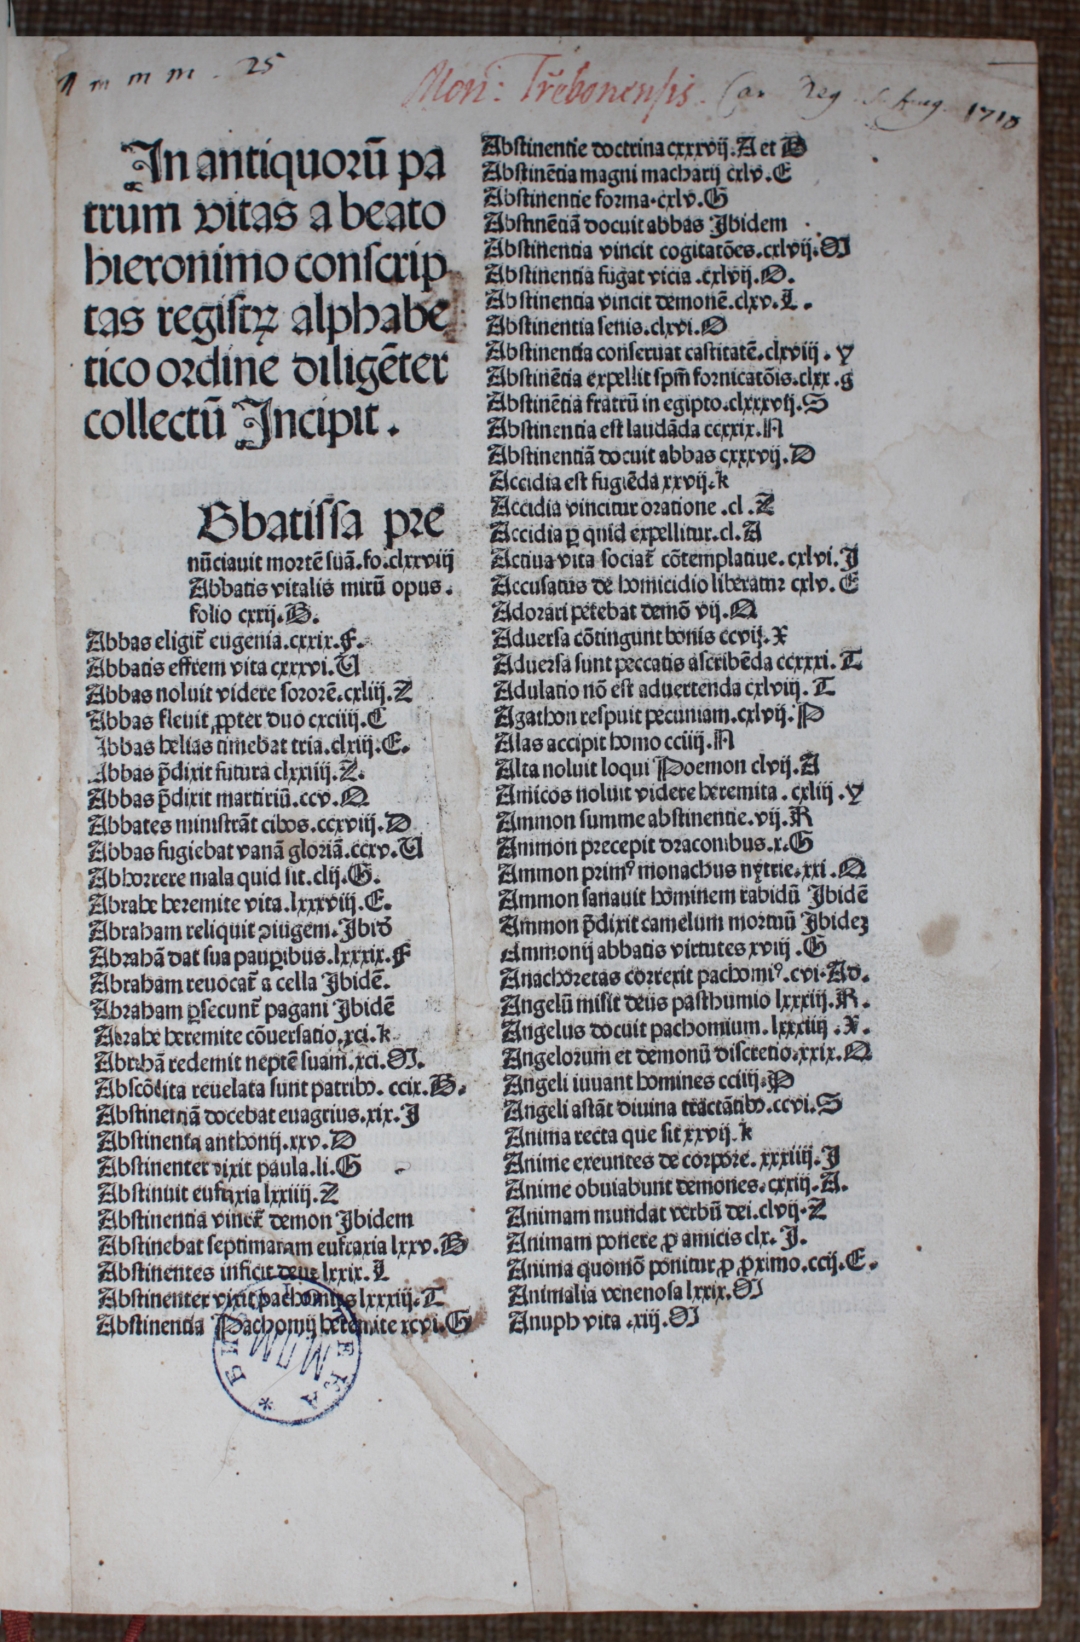 m m m . 25
Mon: Trebonensis. Can Reg S. Aug. 1710
In antiquorū pa
trum vitas a beato
hieronimo conscrip
tas registrꝝ alphabe
tico ordine diligēter
collectū Incipit.
Bbatissa pre
nūciauit mortē suā.fo.clxxviij
Abbatis vitalis mirū opus.
folio cxxij.B.
Abbas eligit̄ eugenia.cxxix.F.
Abbatis effrem vita cxxxvi.U
Abbas noluit videre sororē.cxliij.Z
Abbas fleuit ꝓpter duo cxciiij.C
Abbas helias timebat tria.clxiij.E.
Abbas p̄dixit futura clxxiiij.Z.
Abbas p̄dixit martiriū.ccv.Q
Abbates ministrāt cibos.ccxviij.D
Abbas fugiebat vanā gloriā.ccxv.U
Abhorrere mala quid sit.clij.G.
Abrahe heremite vita.lxxxviij.E.
Abraham reliquit ꝯiugem.Ibid
Abrahā dat sua pauꝑibus.lxxxix.F
Abraham reuocat̄ a cella Ibidē.
Abraham ꝑsecunt̄ pagani Ibidē
Abrahe heremite cōuersatio.xci.k
Abrahā redemit neptē suam.xci.M.
Abscōdita reuelata sunt patribꝰ. ccix.B.
Abstinentiā docebat euagrius.xix.I
Abstinentia anthonij.xxv.D
Abstinenter vixit paula.li.G
Abstinuit eufraxia lxxiiij.Z
Abstinentia vincit̄ demon Ibidem
Abstinebat septimanam eufraxia lxxv.B
Abstinentes inficit deus lxxix.L
Abstinenter vixit pachomius lxxxiij.T
Abstinentia Pachomij heremite xcvi.G
Abstinentie doctrina cxxxvij.A et B
Abstinētia magni macharij cxlv.E
Abstinentie forma.cxlv.G
Abstinētiā docuit abbas Ibidem
Abstinentia vincit cogitatōes.cxlvij.M
Abstinentia fugat vicia.cxlvij.O.
Abstinentia vincit demonē.clxv.L.
Abstinentia senis.clxvi.O
Abstinentia conseruat castitatē.clxviij.y
Abstinētia expellit spm̄ fornicatōis.clxx.g
Abstinētia fratrū in egipto.clxxxvij.S
Abstinentia est laudāda ccxxix.N
Abstinentiā docuit abbas cxxxvij.D
Accidia est fugiēda xxvij.k
Accidia vincitur oratione.cl.Z
Accidia ꝑ quid expellitur.cl.A
Actiua vita sociat̄ cōtemplatiue.cxlvi.I
Accusatus de homicidio liberatur cxlv.E
Adorari petebat demō vij.Q
Aduersa cōtingunt bonis ccvij.X
Aduersa sunt peccatis ascribēda ccxxxi.T
Adulatio nō est aduertenda cxlviij.T
Agathon respuit pecuniam.cxlvij.P
Alas accipit homo cciiij.N
Alta noluit loqui Poemon clvij.A
Amicos noluit videre heremita.cxliij.y
Ammon summe abstinentie.vij.R
Ammon precepit draconibus.x.G
Ammon primꝰ monachus nytrie.xxi.Q
Ammon sanauit hominem rabidū Ibidē
Ammon p̄dixit camelum mortuū Ibidez
Ammonij abbatis virtutes xviij.G
Anachoretas correxit pachomiꝰ.cvi.Ad.
Angelū misit deus pasthumio lxxxiij.R.
Angelus docuit pachomium.lxxxiiij.X.
Angelorum et demonū discretio.xxix.Q
Angeli iuuant homines cciiij.P
Angeli astāt diuina tractātibꝰ.ccvi.S
Anima recta que sit xxvij.k
Anime exeuntes de corpore.xxxiiij.I
Anime obuiabunt demones.cxxiij.A.
Animam mundat verbū dei.clvij.Z
Animam ponere ꝓ amicis clx.I.
Anima quomō ponitur ꝓ ꝓximo.ccij.E.
Animalia venenosa lxxix.M
Anuph vita.xiij.M